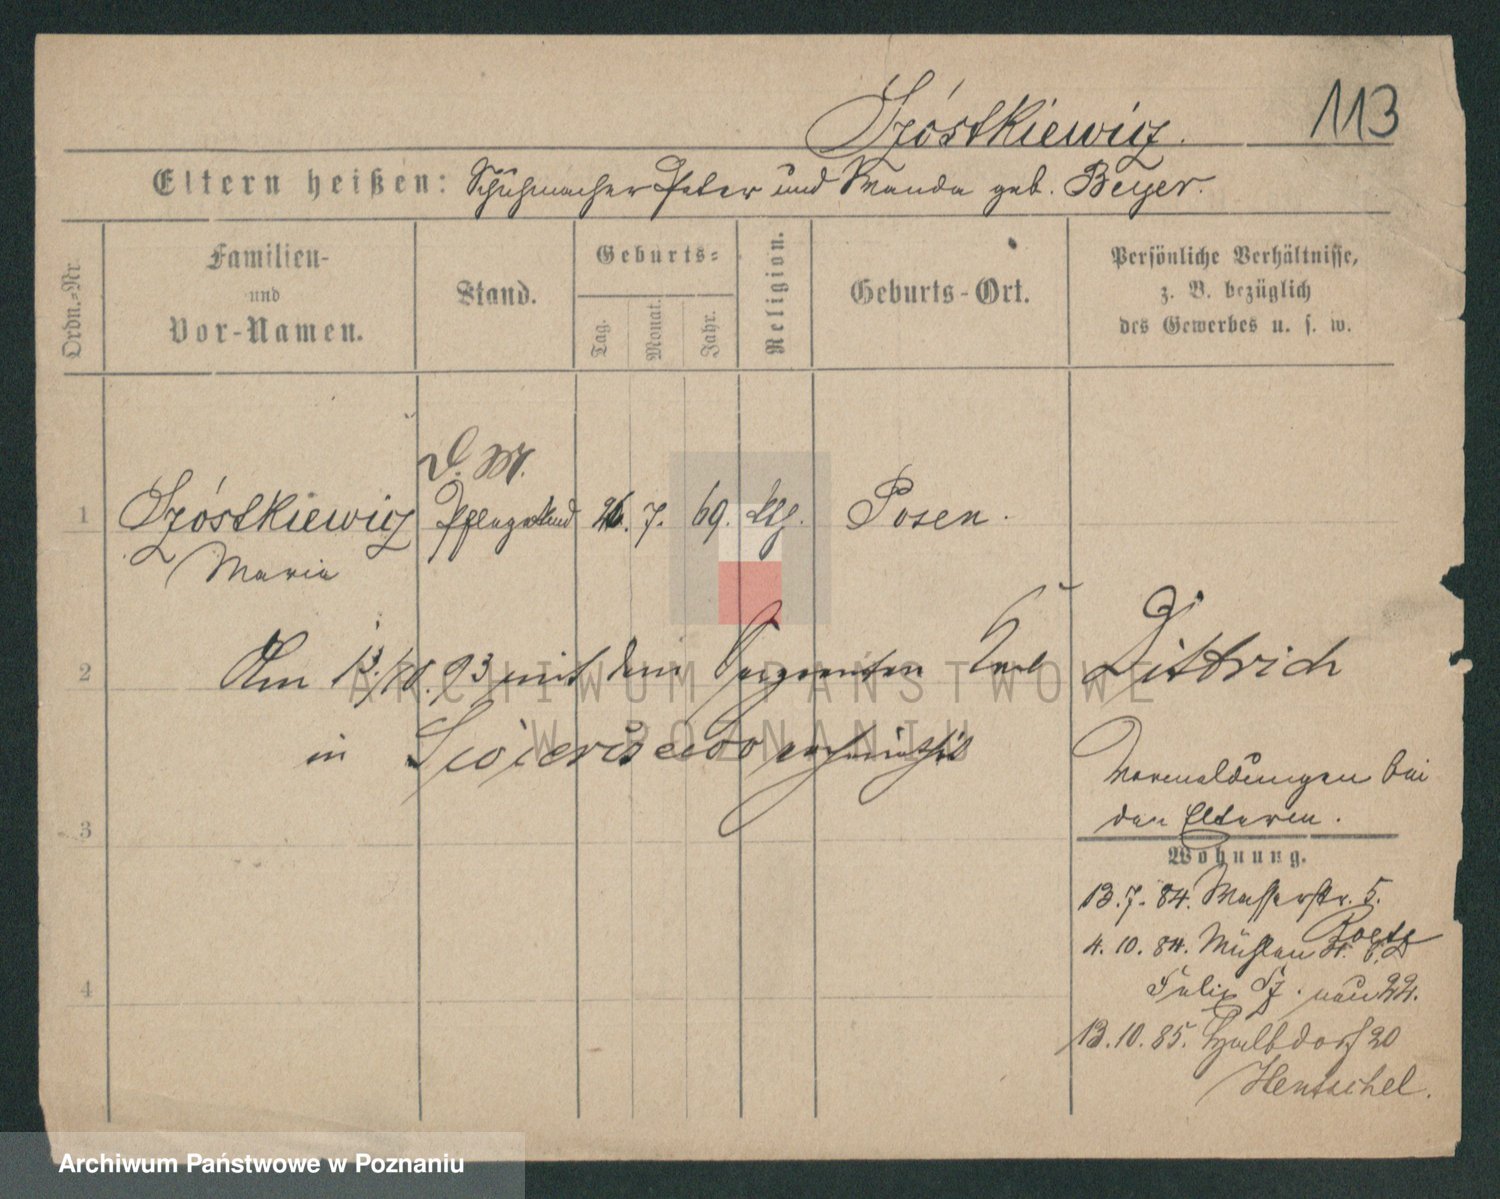 113
Szóstkiewicz.
Eltern heißen: Schuhmacher Peter und Wanda geb. Beyer.
Ordn.-Nr.
Familien- und Vor-Namen.
Stand.
Geburts-
Tag. Monat. Jahr.
Religion.
Geburts-Ort.
Persönliche Verhältnisse,
z. B. bezüglich
des Gewerbes u. s. w.
D. M.
1 Szóstkiewicz Pflegekind 26. 7. 69. kth. Posen.
Maria
2 Am 13/10. 93 mit dem Sergenten Karl Dittrich
in verheirathet
Vormeldungen bei
den Elteren.
3
Wohnung.
13. 7. 84. Wasserstr. 5.
4. 10. 84. Mühlenstr.
Felix Sz. neu 22.
4
13. 10. 85. Halbdorf 20
Hentschel.
ARCHIWUM PAŃSTWOWE
W POZNANIU
Archiwum Państwowe w Poznaniu